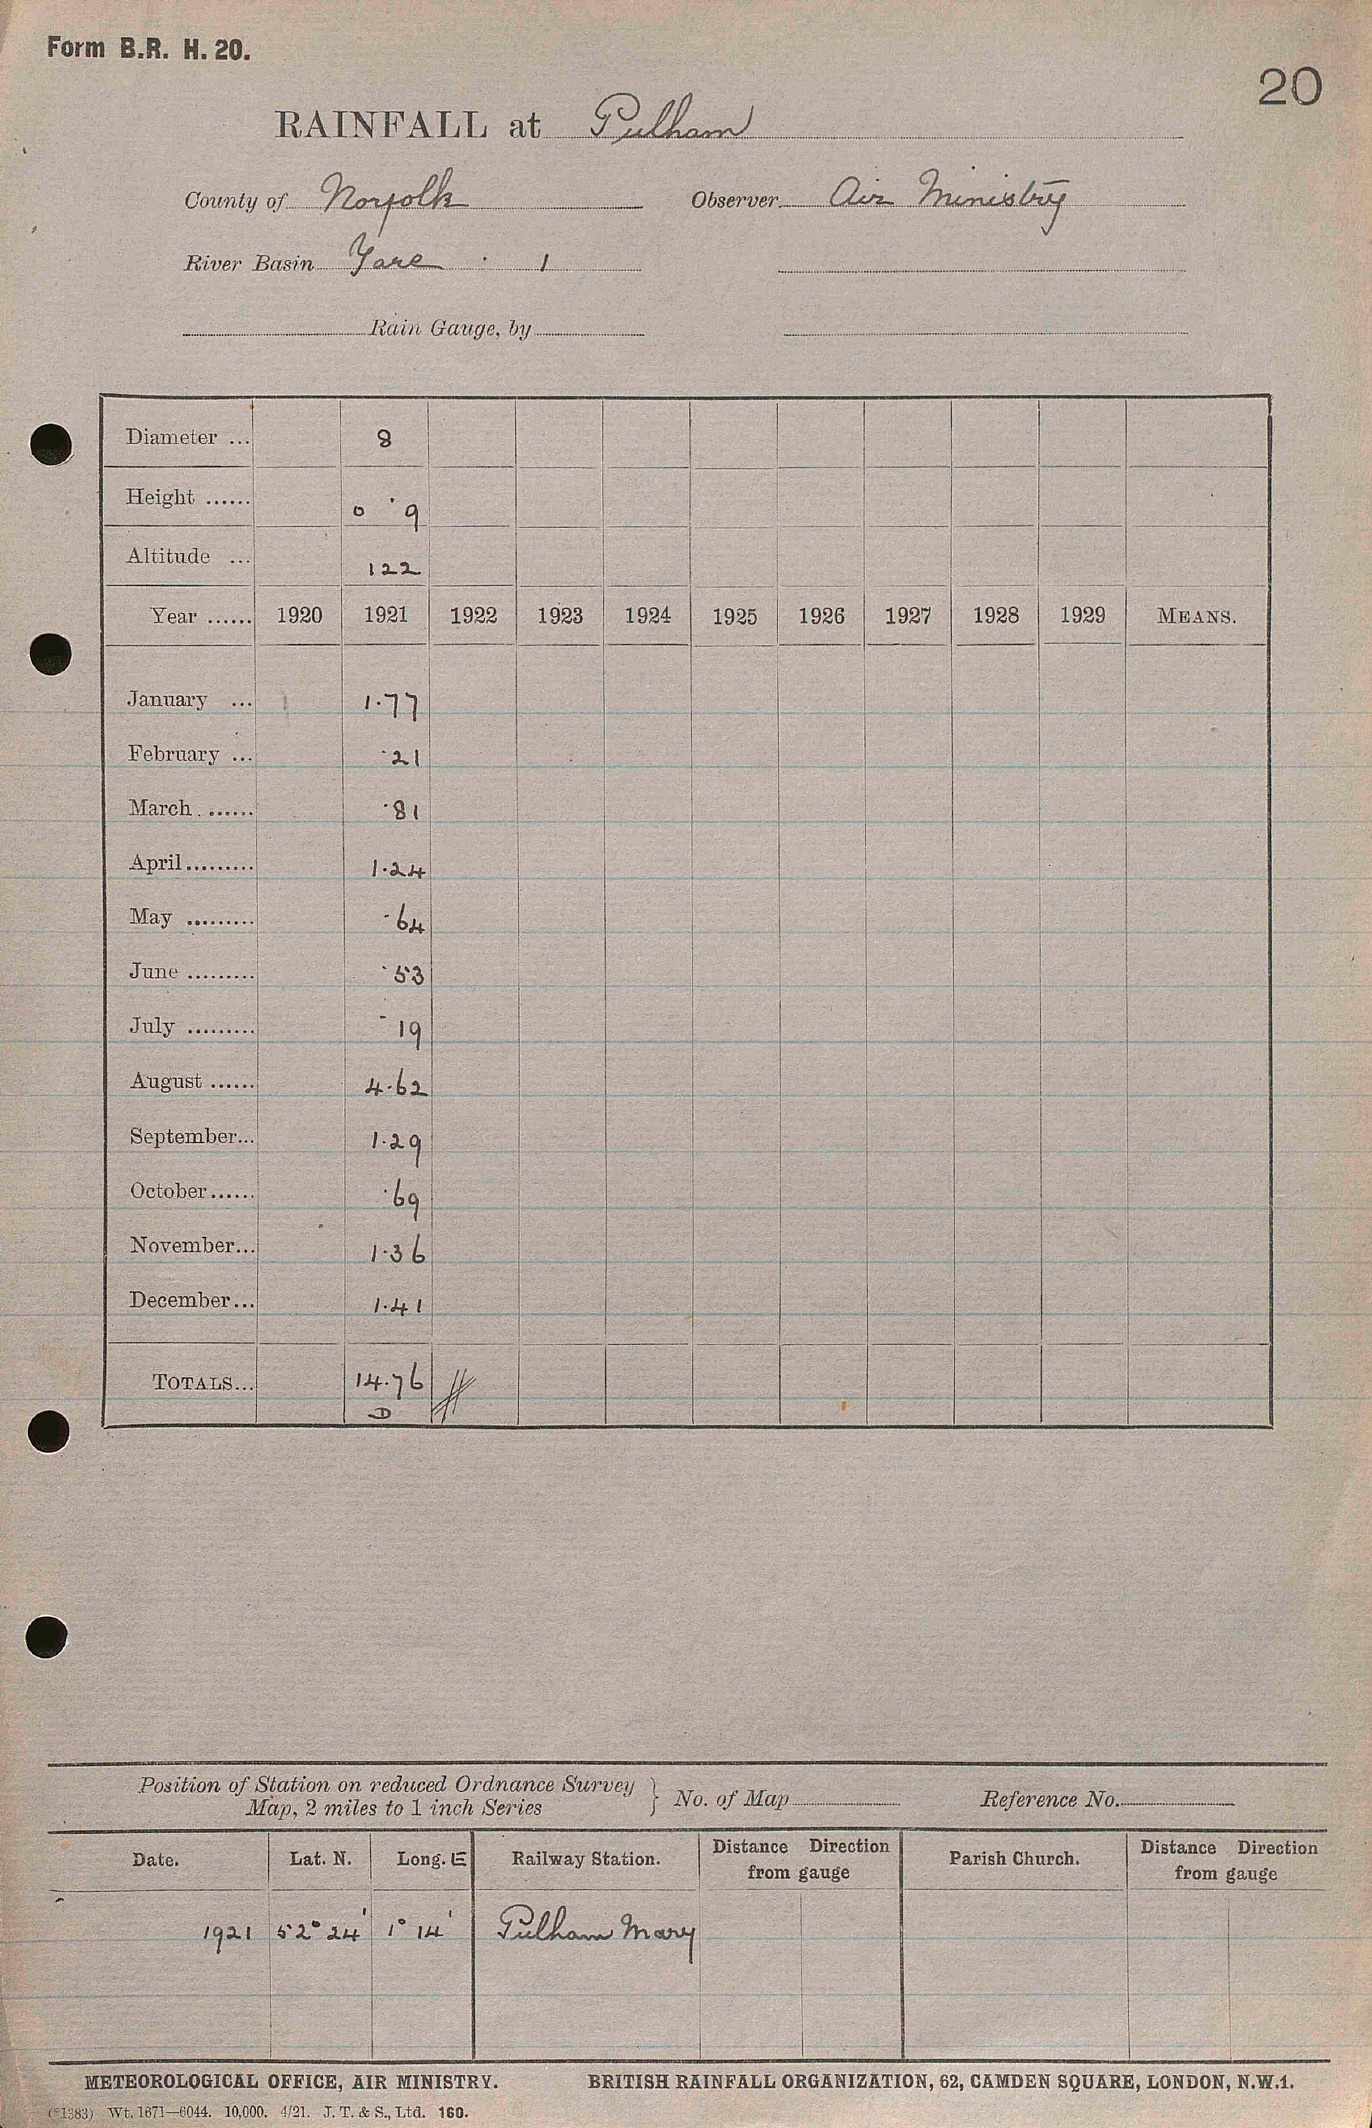 Form B.R. H. 20.
20
RAINFALL at Pulham
County of Norfolk Observer Air Ministry
River Basin Yare . 1
Rain Gauge, by
Diameter ... 8
Height ...... 0 ' 9
Altitude ... 122
Year ...... 1920 1921 1922 1923 1924 1925 1926 1927 1928 1929 MEANS.
January ... 1.77
February ... .21
March ...... .81
April ......... 1.24
May ......... .64
June ......... .53
July ......... .19
August ...... 4.62
September... 1.29
October ...... .69
November... 1.36
December... 1.41
TOTALS... 14.76
D
Position of Station on reduced Ordnance Survey
Map, 2 miles to 1 inch Series } No. of Map Reference No.
Date. Lat. N. Long. E Railway Station. Distance Direction from gauge Parish Church. Distance Direction from gauge
1921 52° 24' 1° 14' Pulham Mary
METEOROLOGICAL OFFICE, AIR MINISTRY. BRITISH RAINFALL ORGANIZATION, 62, CAMDEN SQUARE, LONDON, N.W.1.
(*1383) Wt. 1671—6044. 10,000. 4/21. J. T. & S., Ltd. 160.